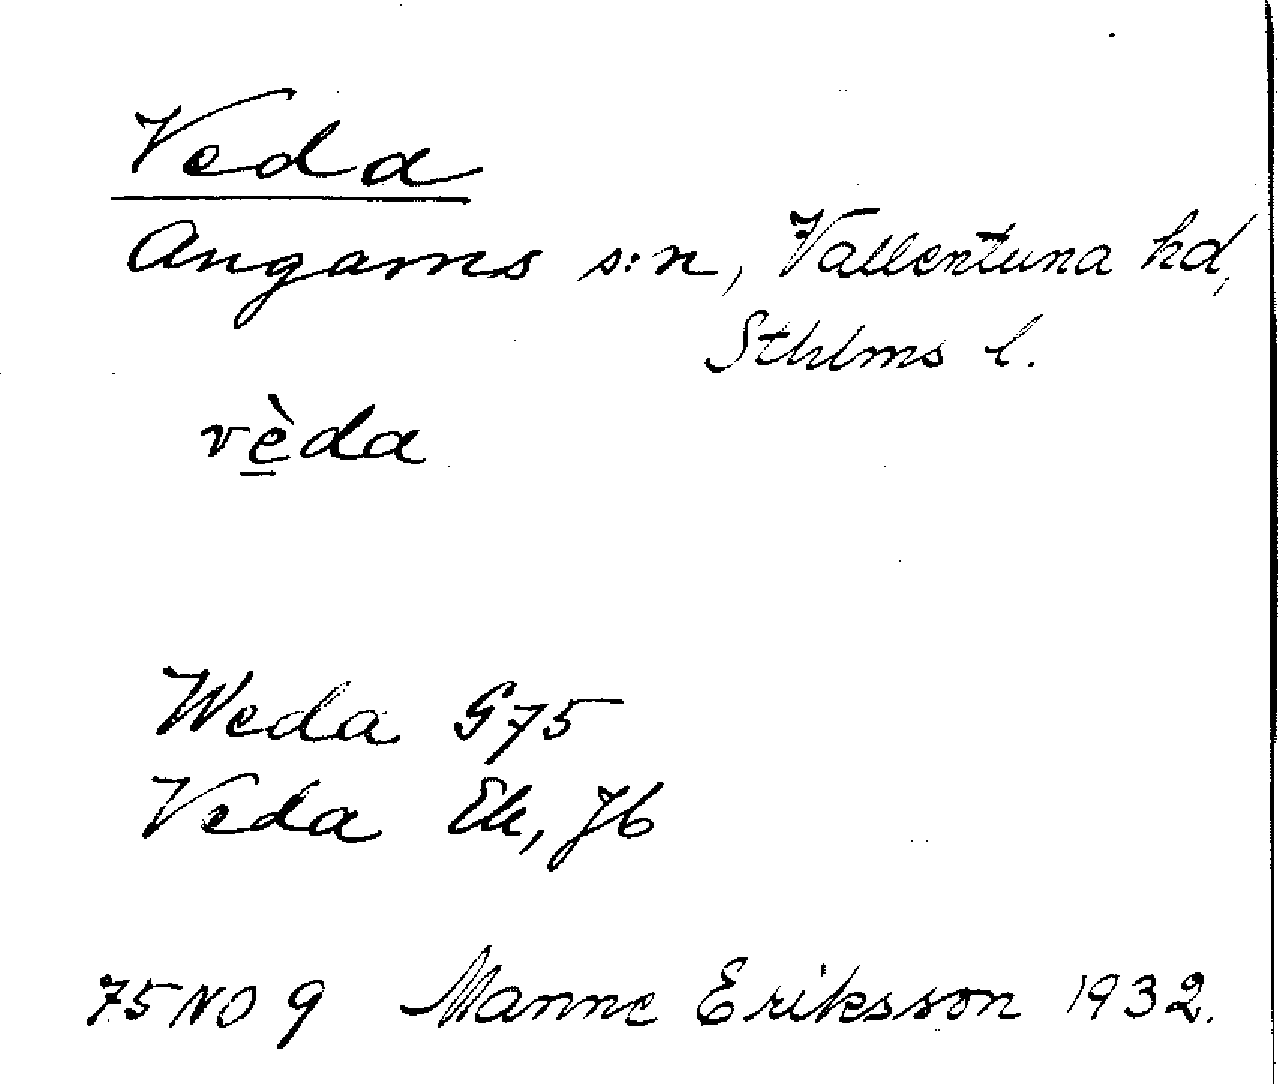 Veda
Angarns s:n, Vallentuna hd,
Sthlms l.
vèda
Weda G75
Veda Ek, Jb
75 NO 9 Manne Eriksson 1932.